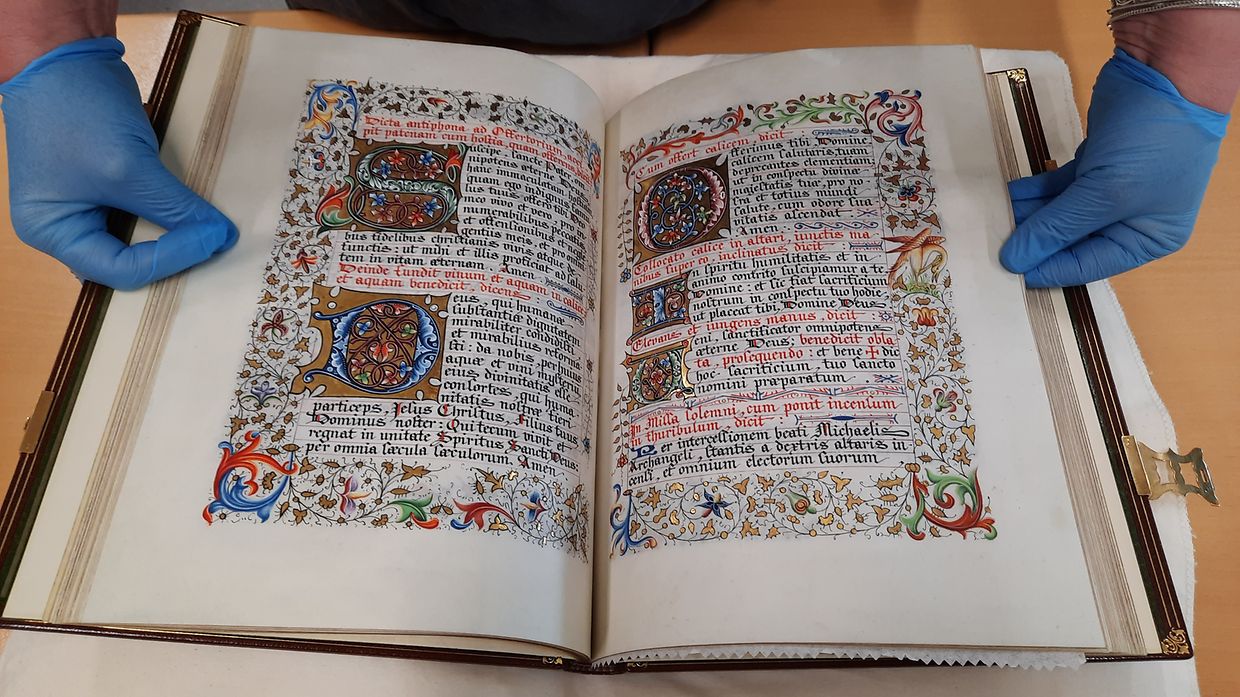 Dicta antiphona ad Offertorium, acci
pit patenam cum hostia, quam offerens,
Suscipe, sancte Pater, om
nipotens æterne Deus,
hanc immaculatam hostiam
quam ego indignus famu
lus tuus offero tibi Deo
meo vivo et vero pro in
numerabilibus peccatis
et offensionibus et negli
gentiis meis, et pro omni
bus fidelibus christianis vivis atque de
functis: ut mihi et illis proficiat ad salu
tem in vitam æternam. Amen.
Deinde fundit vinum et aquam in calice
et aquam benedicit, dicens
Deus, qui humanæ
substantiæ dignitatem
mirabiliter condidisti
et mirabilius reforma
sti: da nobis, per hujus
aquæ et vini mysterium
ejus divinitatis esse
consortes, qui huma
nitatis nostræ fieri
particeps, Jesus Christus, Filius tuus
Dominus noster: Qui tecum vivit et
regnat in unitate Spiritus Sancti Deus:
per omnia sæcula sæculorum. Amen.
Cum offert calicem, dicit
Offerimus tibi, Domine
calicem salutaris, tuam
deprecantes clementiam:
ut in conspectu divinæ
majestatis tuæ, pro no
stra et totius mundi
salute cum odore sua
vitatis ascendat
Amen.
Collocato calice in altari, junctis ma
nibus super eo, inclinatus dicit
In spiritu humilitatis et in
animo contrito suscipiamur a te
Domine: et sic fiat sacrificium
nostrum in conspectu tuo hodie,
ut placeat tibi, Domine Deus
Elevans et jungens manus, dicit
Veni, sanctificator omnipotens
æterne Deus; benedicit obla
ta, prosequendo: et bene ✝ dic
hoc sacrificium, tuo sancto
nomini præparatum
In Missa solemni, cum ponit incensum
in thuribulum, dicit
Per intercessionem beati Michaelis
Archangeli, stantis a dextris altaris
censi, et omnium electorum suorum